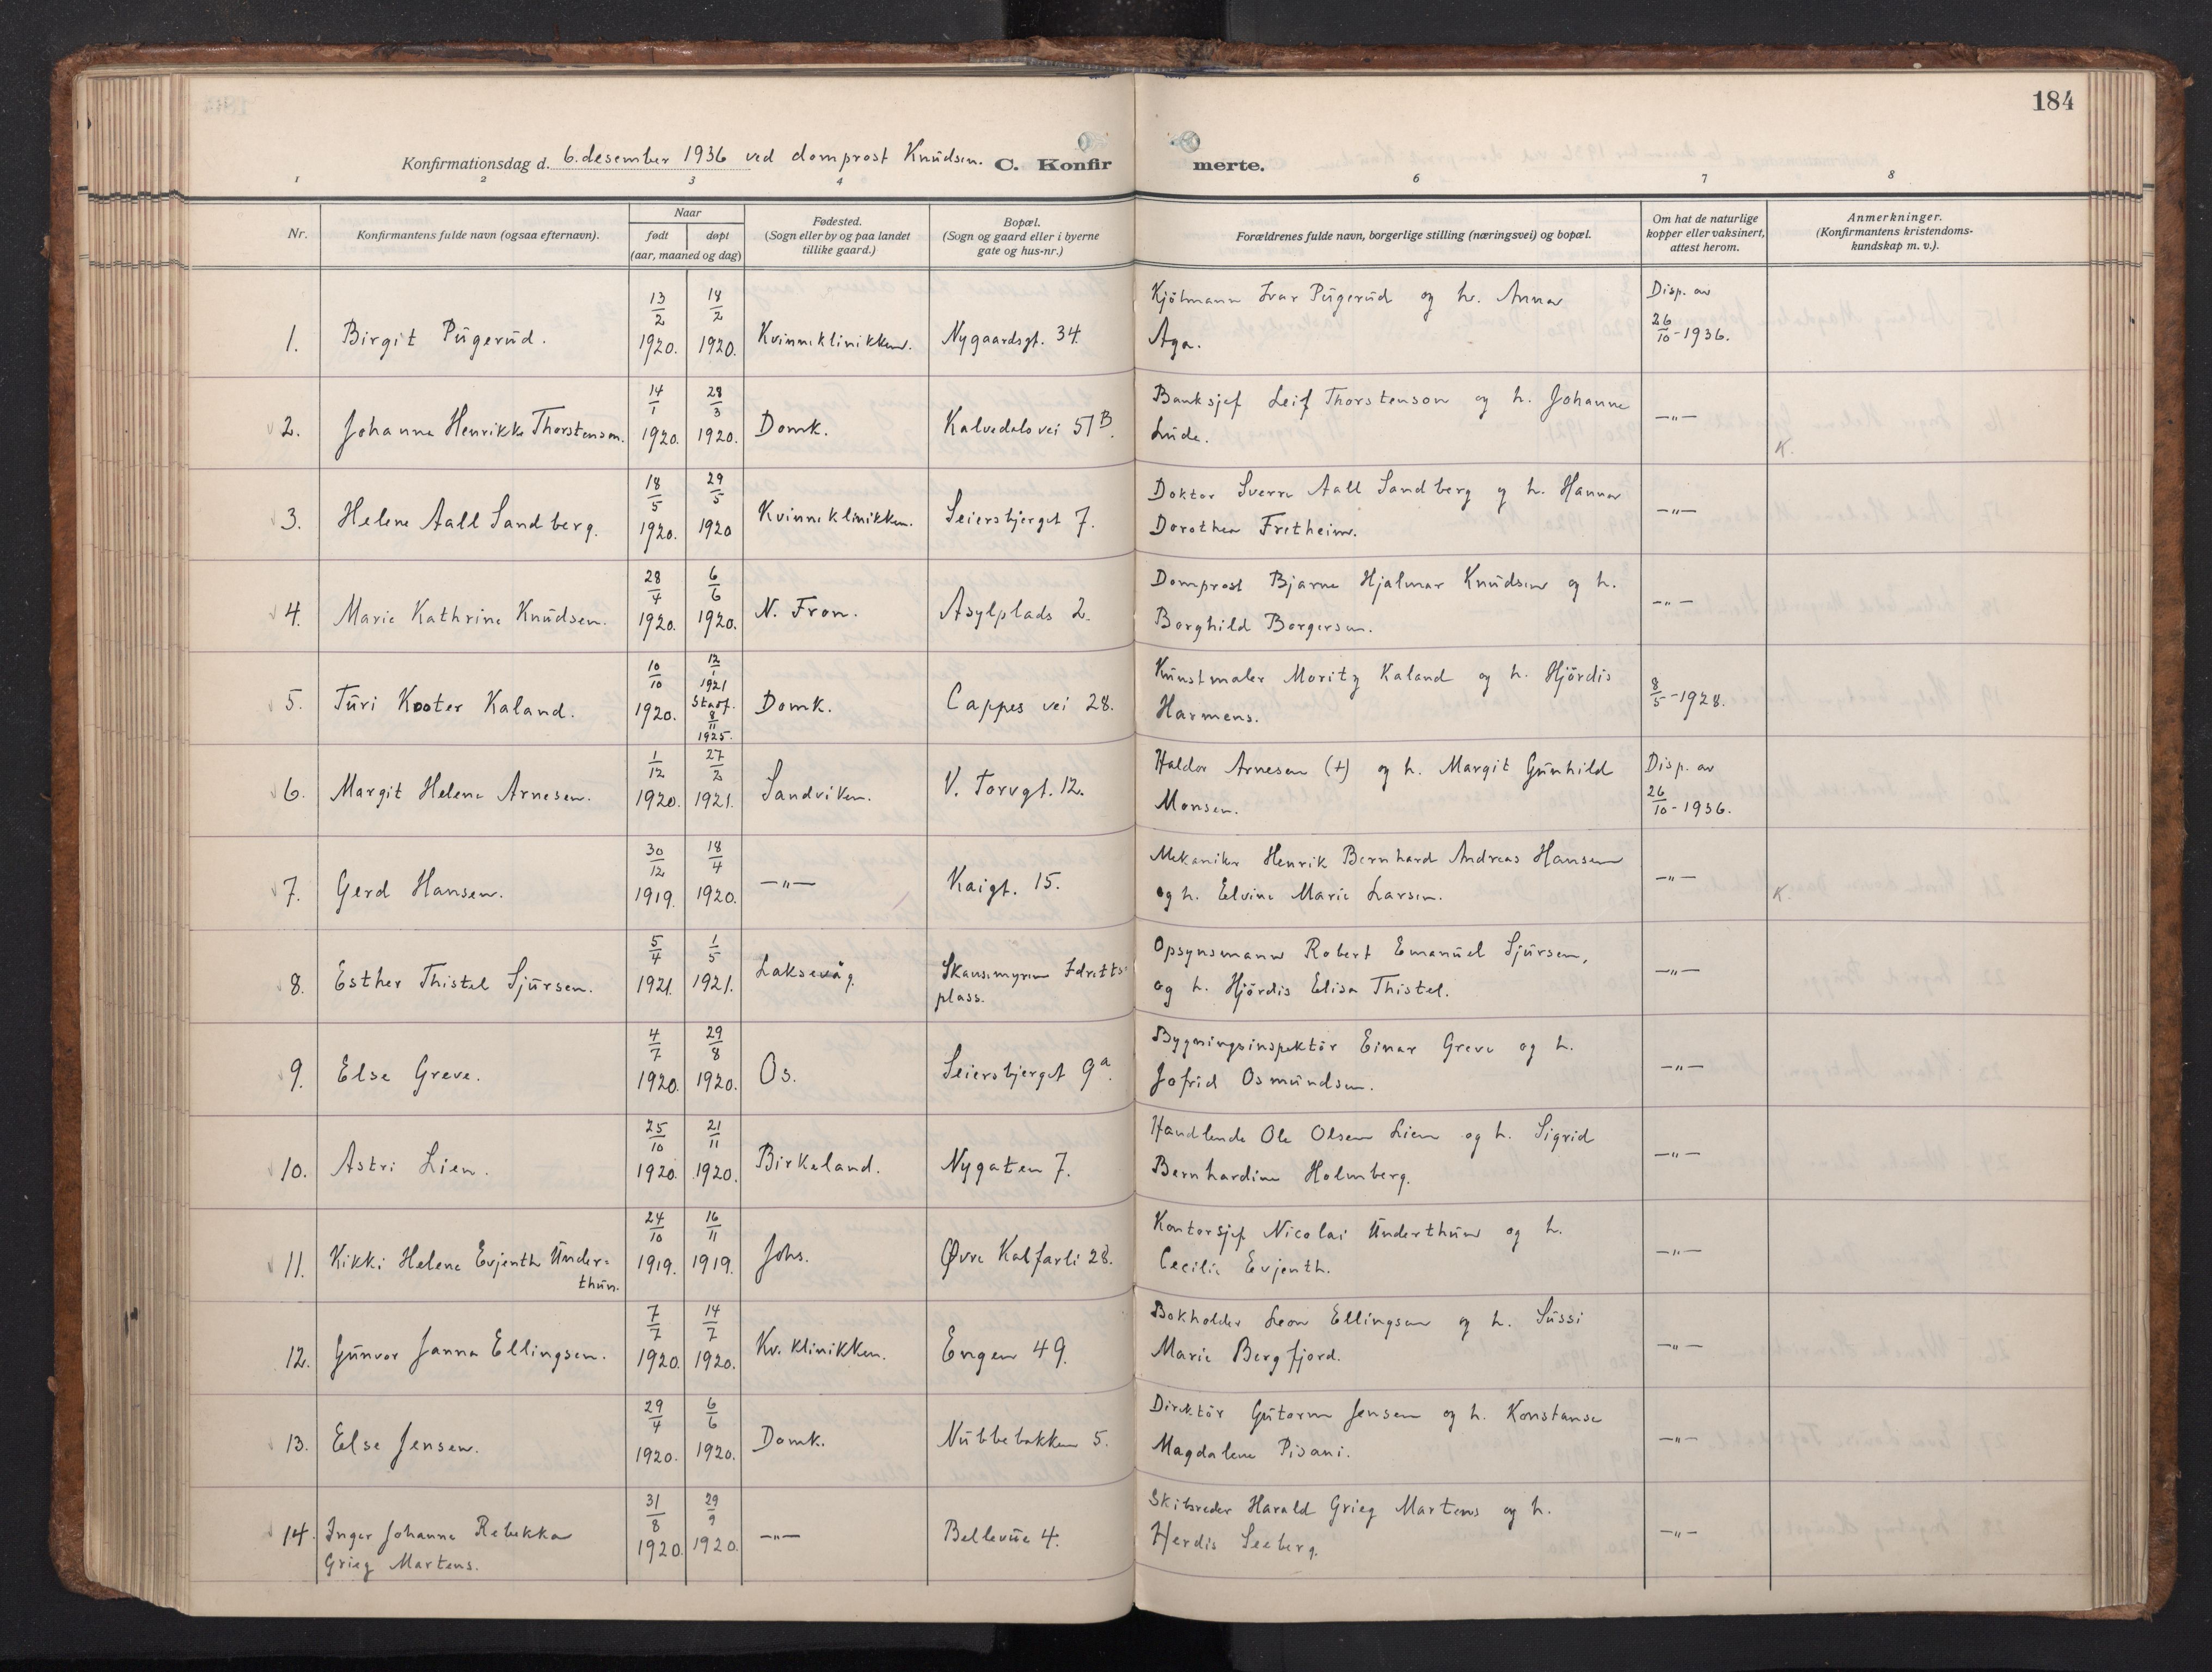 184
Konfirmationsdag d. 6. desember 1936 ved domprost Knudsen. C. Konfirmerte.
1 2 3 4 6 7 8
Nr.
Konfirmantens fulde navn (ogsaa efternavn).
Naar
født døpt
(aar, maaned og dag)
Fødested.
(Sogn eller by og paa landet
tillike gaard.)
Bopæl.
(Sogn og gaard eller i byerne
gate og hus-nr.)
Forældrenes fulde navn, borgerlige stilling (næringsvei) og bopæl.
Om hat de naturlige
kopper eller vaksinert,
attest herom.
Anmerkninger.
(Konfirmantens kristendoms-
kundskap m. v.).
1. Birgit Pugerud. 13/2 1920. 18/2 1920. Kvinneklinikken. Nygaardsgt. 34. Kjölmann Ivar Pugerud og h. Anna
Aga. Disp. av 26/10-1936.
2. Johanna Henrikke Thorstenson. 14/1 1920. 28/3 1920. Domk. Kalvedalsvei 57B. Banksjef Leif Thorstenson og h. Johanne
Lude. —"— K.
3. Helene Aall Sandberg. 18/5 1920. 29/5 1920 Kvinneklinikken. Seiersbjerget 7. Doktor Sverre Aall Sandberg og h. Hanna
Dorothea Fretheim. —"—
4. Marie Kathrine Knudsen. 28/4 1920. 6/6 1920. N. Fron. Asylplads 2. Domprost Bjarne Hjalmar Knudsen og h.
Borghild Borgersen. —"—
5. Turi Kooter Kaland. 10/10 1920. 12/1 1921 Stadf. 8/11 1925. Domk. Cappes vei 28. Kunstmaler Moritz Kaland og h. Hjördis
Harmens. 8/5-1928.
6. Margit Helene Arnesen. 1/12 1920. 27/2 1921. Sandviken. V. Torvgt. 12. Haldor Arnesen (+) og h. Margit Gunhild
Monsen. Disp. av 26/10-1936.
7. Gerd Hansen. 30/12 1919. 18/4 1920. —"— Kaigt. 15. Mekaniker Henrik Bernhard Andreas Hansen
og h. Elvine Marie Larsen. —"— K.
8. Esther Thistel Sjursen. 5/4 1921. 1/5 1921. Laksevåg. Skansemyren Idretts-
plass. Opsynsmann Robert Emanuel Sjursen,
og h. Hjördis Elisa Thistel. —"—
9. Else Greve. 4/7 1920. 29/8 1920. Os. Seiersbjerget 9a. Bygningsinspektör Einar Greve og h.
Jofrid Osmundsen. —"—
10. Astri Lien. 25/10 1920. 21/11 1920. Birkeland. Nygaten 7. Handlende Ole Olsen Lien og h. Sigrid
Bernhardine Holmberg. —"—
11. Kikki Helene Evjenth Under-
thun. 24/10 1919. 16/11 1919. Johs. Øvre Kalfarli 28. Kontorsjef Nicolai Underthun og h.
Cecilie Evjenth. —"—
12. Gunvor Janna Ellingsen. 7/7 1920. 14/7 1920. Kv. klinikken. Engen 49. Bokholder Leon Ellingsen og h. Sussi
Marie Bergfjord. —"—
13. Else Jensen. 29/4 1920. 6/6 1920. Domk. Nubbebakken 5. Direktör Gutorm Jensen og h. Konstanse
Magdalene Pisani. —"—
14. Inger Johanne Rebekka
Grieg Martens. 31/8 1920. 29/9 1920. —"— Bellevue 4. Skibsreder Harald Grieg Martens og h.
Herdis Seeberg. —"—